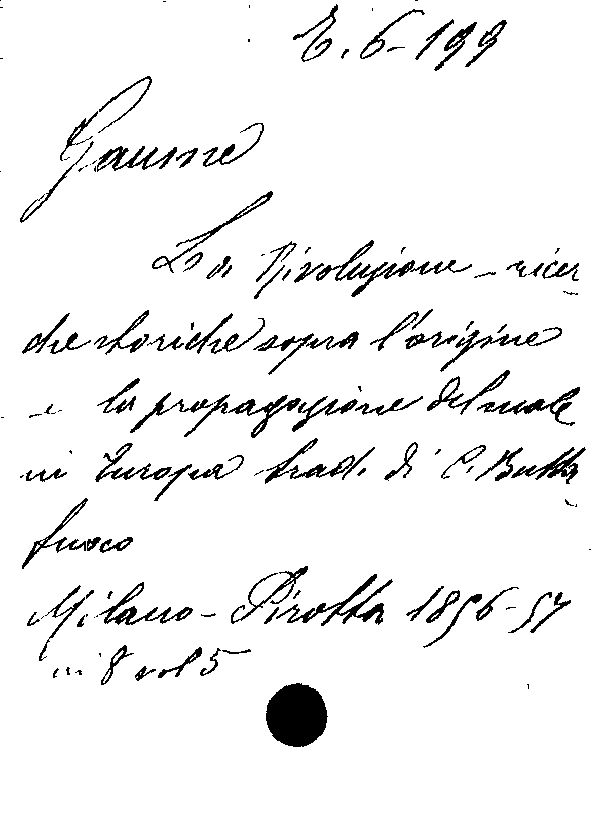 E. 6-199
Gaume
La Rivoluzione - ricer
che storiche sopra l'origine
e la propagazione del male
in Europa trad. di C. Butta
fuoco
Milano - Pirotta 1856-57
in 8 vol 5